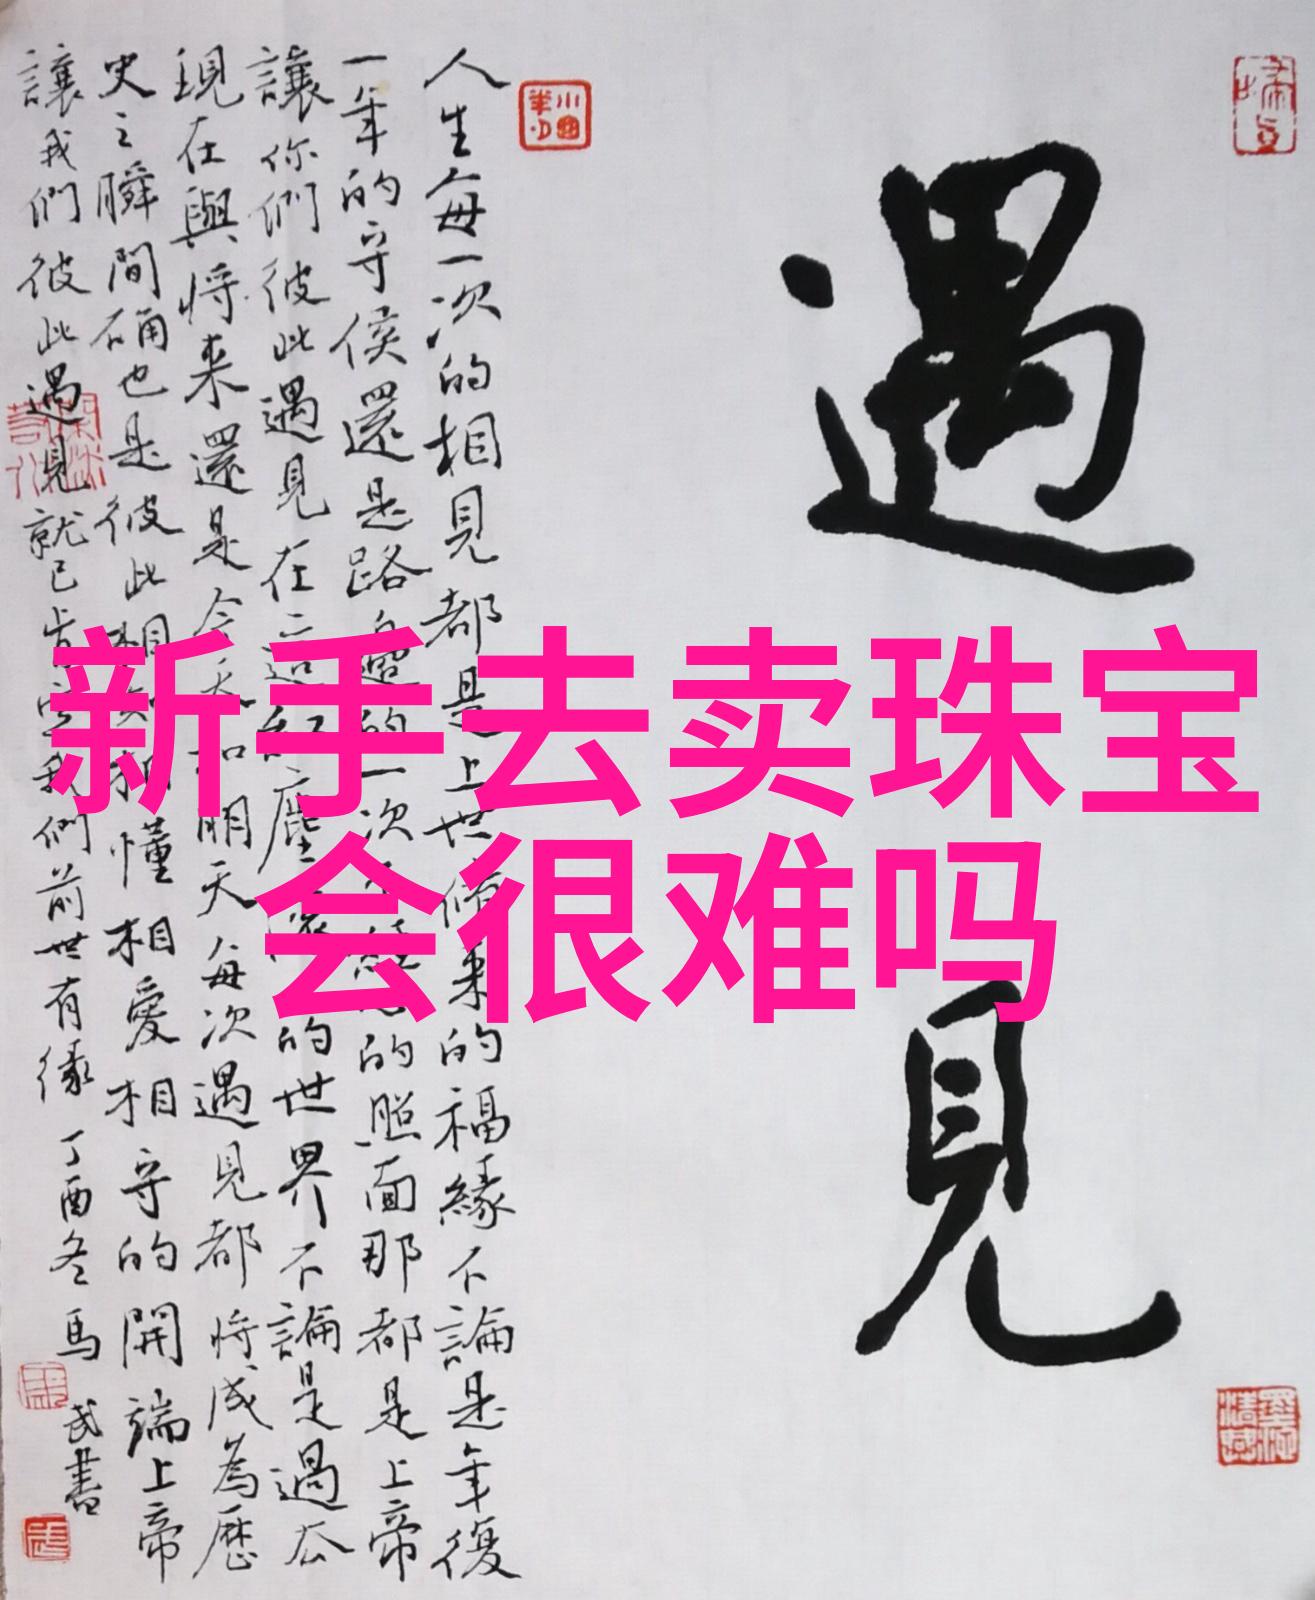 遇見
人生每一次的相見都是上世修来的福緣不論是年復
一年的守侯還是路邊的一次不經意的照面那都是上帝
讓你們彼此遇見在這紅塵的世界不論是過去
現在與将来還是今天和明天每次遇見都将成為歷
史之瞬間确也是彼此相知相懂相愛相守的開端上帝
讓我們彼此遇見就已肯定我們前世有緣 丁酉冬馬武書
新手去卖珠宝
会很难吗